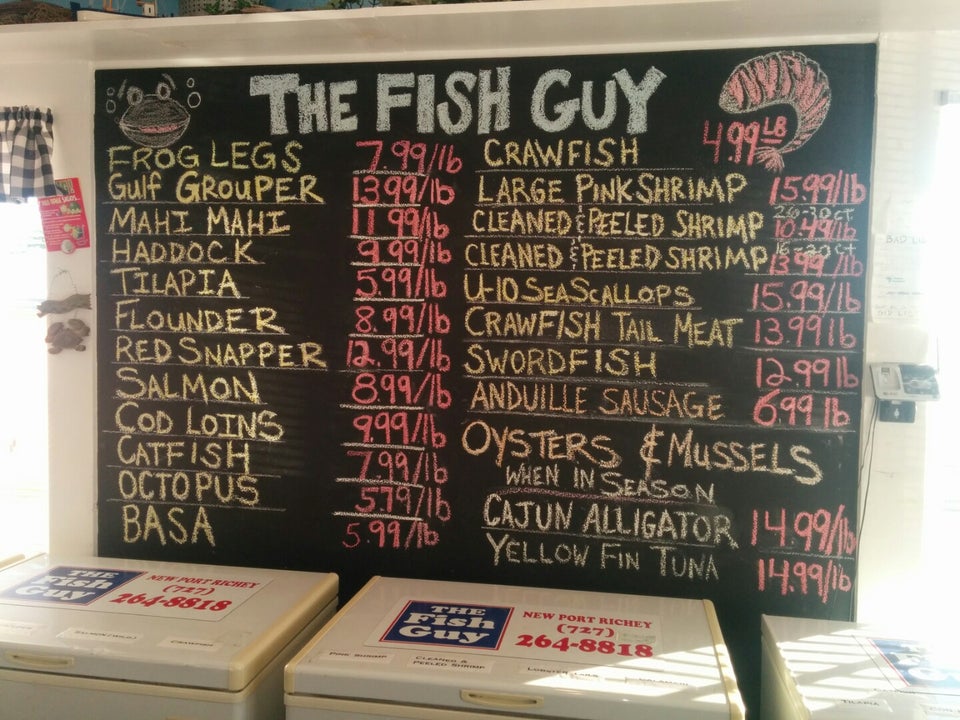 THE FISH GUY
FROG LEGS 7.99/lb
Gulf GROUPER 13.99/lb
MAHI MAHI 11.99/lb
HADDOCK 9.99/lb
TILAPIA 5.99/lb
FLOUNDER 8.99/lb
RED SNAPPER 12.99/lb
SALMON 8.99/lb
COD LOINS 9.99/lb
CATFISH 7.99/lb
OCTOPUS 5.79/lb
BASA 5.99/lb
CRAWFISH 4.99 LB
LARGE PINK SHRIMP 15.99/lb
26-30 CT
CLEANED & PEELED SHRIMP 10.49/lb
CLEANED & PEELED SHRIMP 13.99/lb
U-10 SEA SCALLOPS 15.99/lb
CRAWFISH TAIL MEAT 13.99 lb
SWORDFISH 12.99 lb
ANDUILLE SAUSAGE 6.99 lb
OYSTERS & MUSSELS
WHEN IN SEASON
CAJUN ALLIGATOR 14.99/lb
YELLOW FIN TUNA 14.99/lb
THE
Fish
Guy
NEW PORT RICHEY
(727)
264-8818
CRAWFISH
THE
Fish
Guy
NEW PORT RICHEY
(727)
264-8818
PINK SHRIMP
CLEANED &
PEELED SHRIMP
TILAPIA